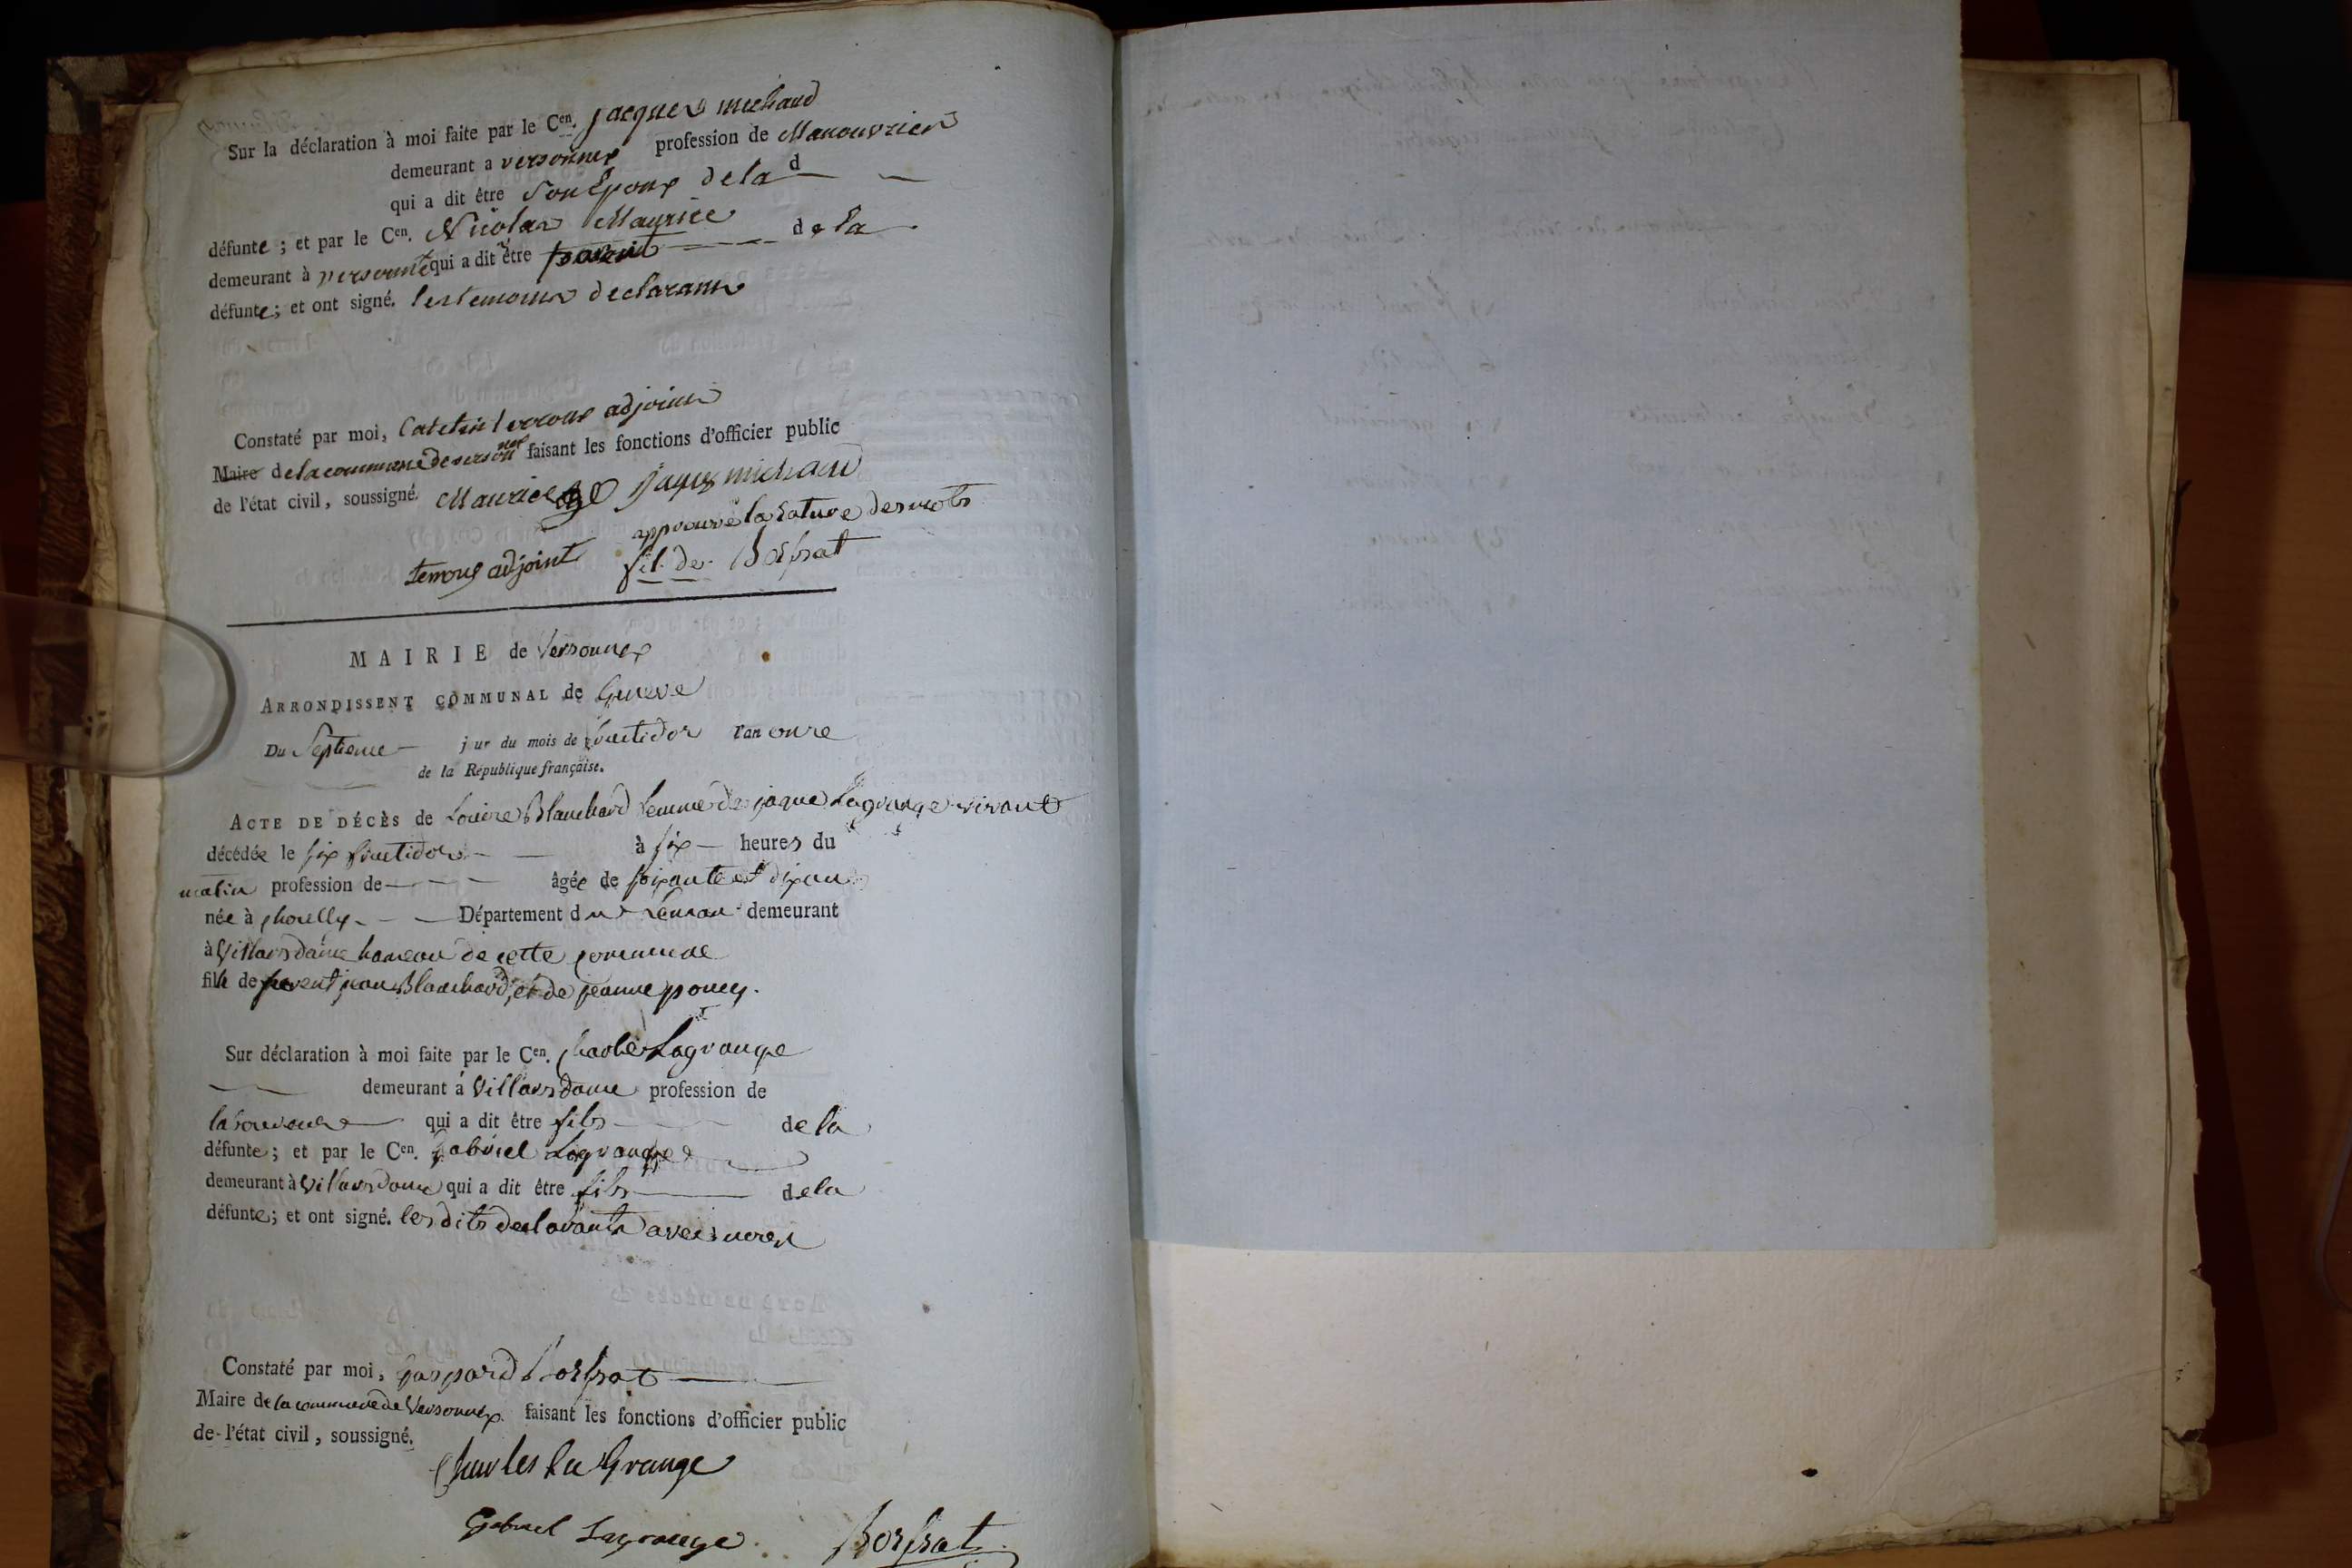 Sur la déclaration à moi faite par le Cen. Jacques Michaud
demeurant a versonnex profession de Manouvrier
qui a dit être son Epoux de la d
défunte ; et par le Cen. Nicolas Maurice
demeurant à qui a dit être de la
défunte ; et ont signé. les temoins declarants
Constaté par moi, terroux adjoint
Maire de la commune de versonnex faisant les fonctions d'officier public
de l'état civil, soussigné. Maurice michaud
approuvé la rature des mots
terroux adjoint fil. de. Borssat
MAIRIE de Versonnex
ARRONDISSENT COMMUNAL de Geneve
Du Septieme jour du mois de fructidor l'an onze
de la République française.
ACTE DE DÉCÈS de Louise Blanchard femme de jaque Lagrange vivant
décédée le six fructidor à six heures du
matin profession de âgée de soixante et dix ans
née à Département du Leman demeurant
à Villars dame hameau de cette commune
fille de jean Blanchard, et de jeanne poncy.
Sur déclaration à moi faite par le Cen. Charles Lagrange
demeurant à Villars dame profession de
laboureur qui a dit être fils de la
défunte ; et par le Cen. gabriel Lagrange
demeurant à Villars dame qui a dit être fils de la
défunte ; et ont signé. les dits declarants avec
Constaté par moi, gaspard Borssat
Maire de la commune de Versonnex faisant les fonctions d'officier public
de l'état civil, soussigné.
Charles La Grange
Gabriel Lagrange Borssat